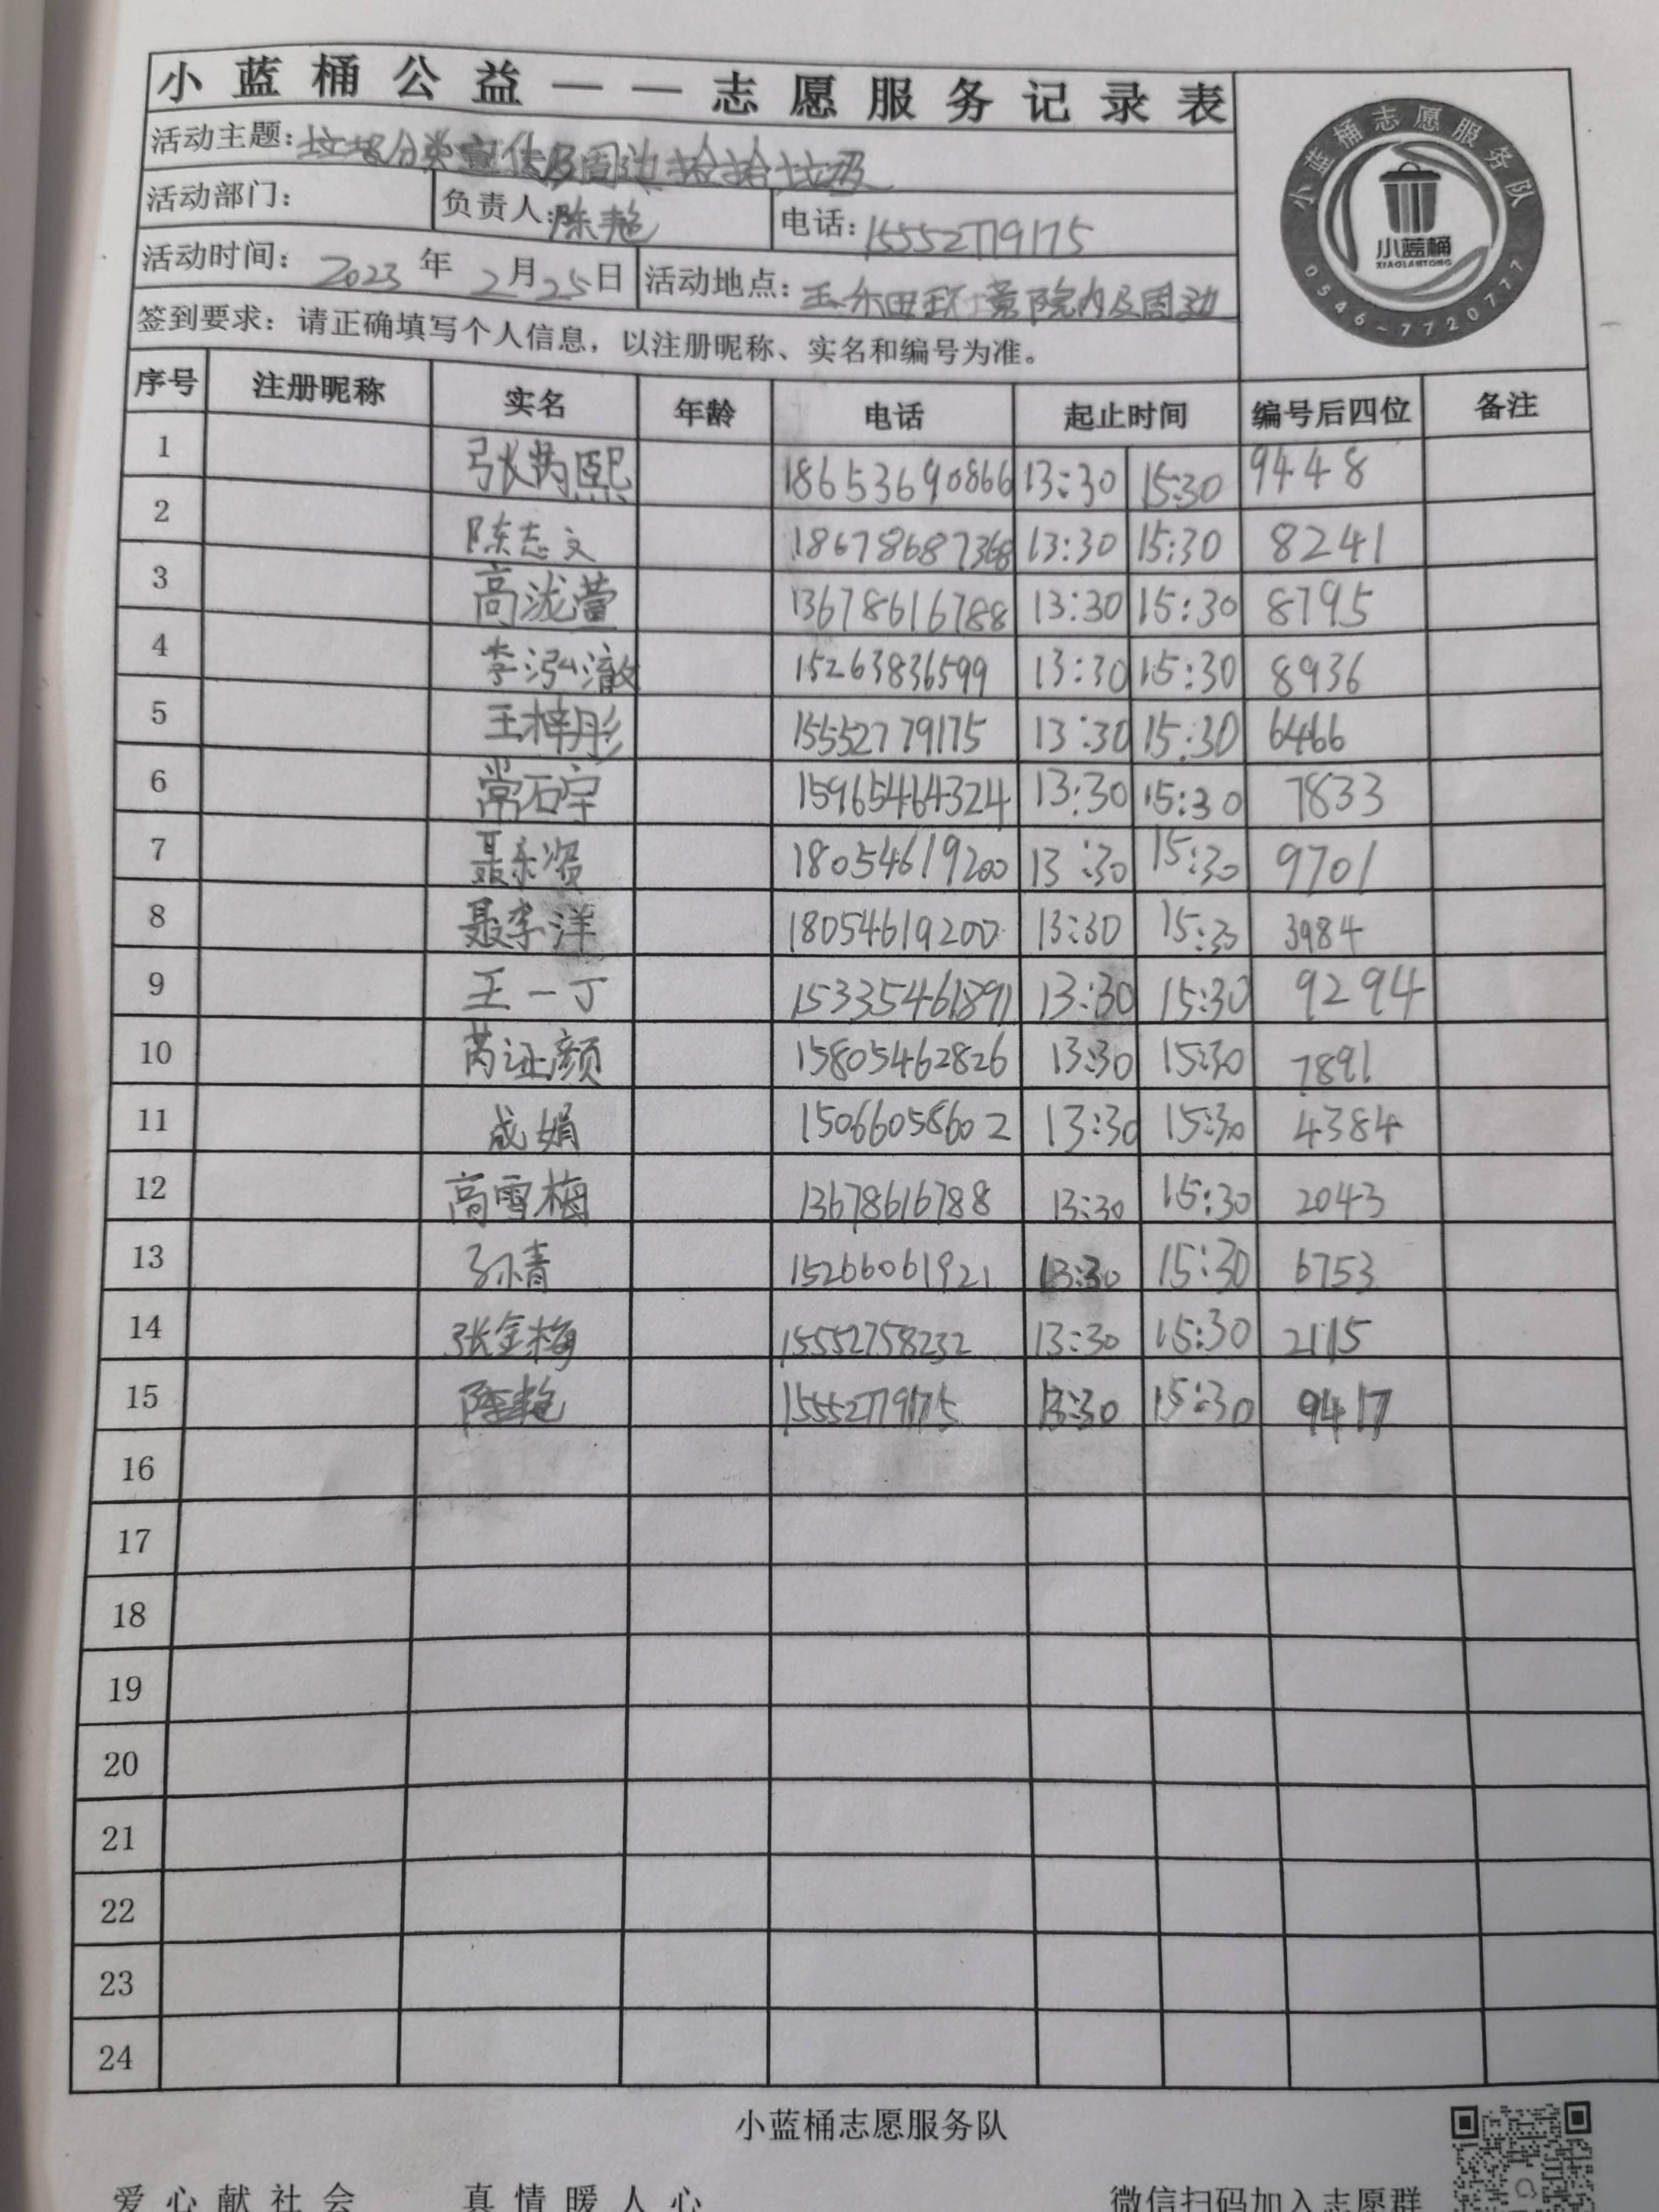 小蓝桶公益——志愿服务记录表
小蓝桶志愿服务队
小蓝桶
XIAOLANTONG
0546-7720777
活动主题：垃圾分类宣传及周边捡拾垃圾
活动部门： 负责人：陈艳 电话：15552779175
活动时间：2023年2月25日 活动地点：玉尔田环境院内及周边
签到要求：请正确填写个人信息，以注册昵称、实名和编号为准。
序号 注册昵称 实名 年龄 电话 起止时间 编号后四位 备注
1 张芮熙 18653690866 13:30 15:30 9448
2 陈志文 18678687368 13:30 15:30 8241
3 高泷萱 13678616788 13:30 15:30 8795
4 李泓澈 15263836599 13:30 15:30 8936
5 王梓彤 15552779175 13:30 15:30 6466
6 常石宇 15965464324 13:30 15:30 7833
7 聂 18054619200 13:30 15:30 9701
8 聂李洋 18054619200 13:30 15:30 3984
9 王一丁 15335461891 13:30 15:30 9294
10 芮证颜 15805462826 13:30 15:30 7891
11 成娟 15066058602 13:30 15:30 4384
12 高雪梅 13678616788 13:30 15:30 2043
13 孙青 15266061921 13:30 15:30 6753
14 张金梅 15552758232 13:30 15:30 2115
15 陈艳 15552779175 13:30 15:30 9417
16
17
18
19
20
21
22
23
24
小蓝桶志愿服务队
爱心献社会 真情暖人心 微信扫码加入志愿群